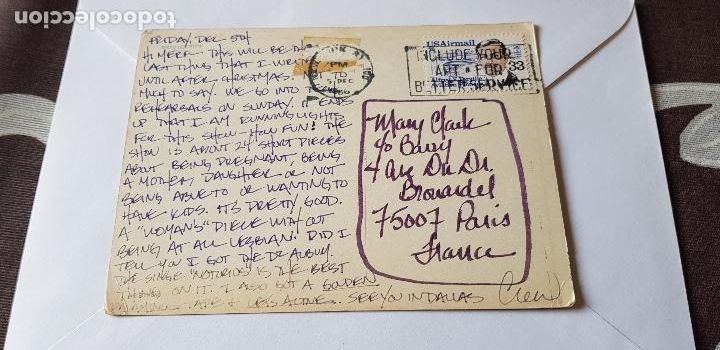 FRIDAY DEC 5TH
HI MERE - THIS WILL BE THE
LAST THING THAT I WRITE
UNTIL AFTER CHRISTMAS. N
MUCH TO SAY. WE GO INTO T
REHEARSALS ON SUNDAY. IT ENDS
UP THAT I AM RUNNING LIGHTS
FOR THIS SHOW - HOW FUN! THE
SHOW IS ABOUT 24 SHORT PIECES
ABOUT BEING PREGNANT, BEING
A MOTHER, DAUGHTER OR NOT
BEING ABLE TO OR WANTING TO
HAVE KIDS. IT'S PRETTY GOOD.
A "WOMANS" PIECE WITHOUT
BEING AT ALL LESBIAN! DID I
TELL YOU I GOT THE DD ALBUM.
THE SINGLE "NOTORIUS" IS THE BEST
THING ON IT. I ALSO GOT A GOLDEN
TAPE + SEE YOU IN DALLAS
PM
5 DEC
USAirmail
33
INCLUDE YOUR
APT. FOR
BETTER SERVICE
Mary Clark
c/o Barry
4 Ave Du Dr.
Brouardel
75007 Paris
France
todocoleccion
todocoleccion.net